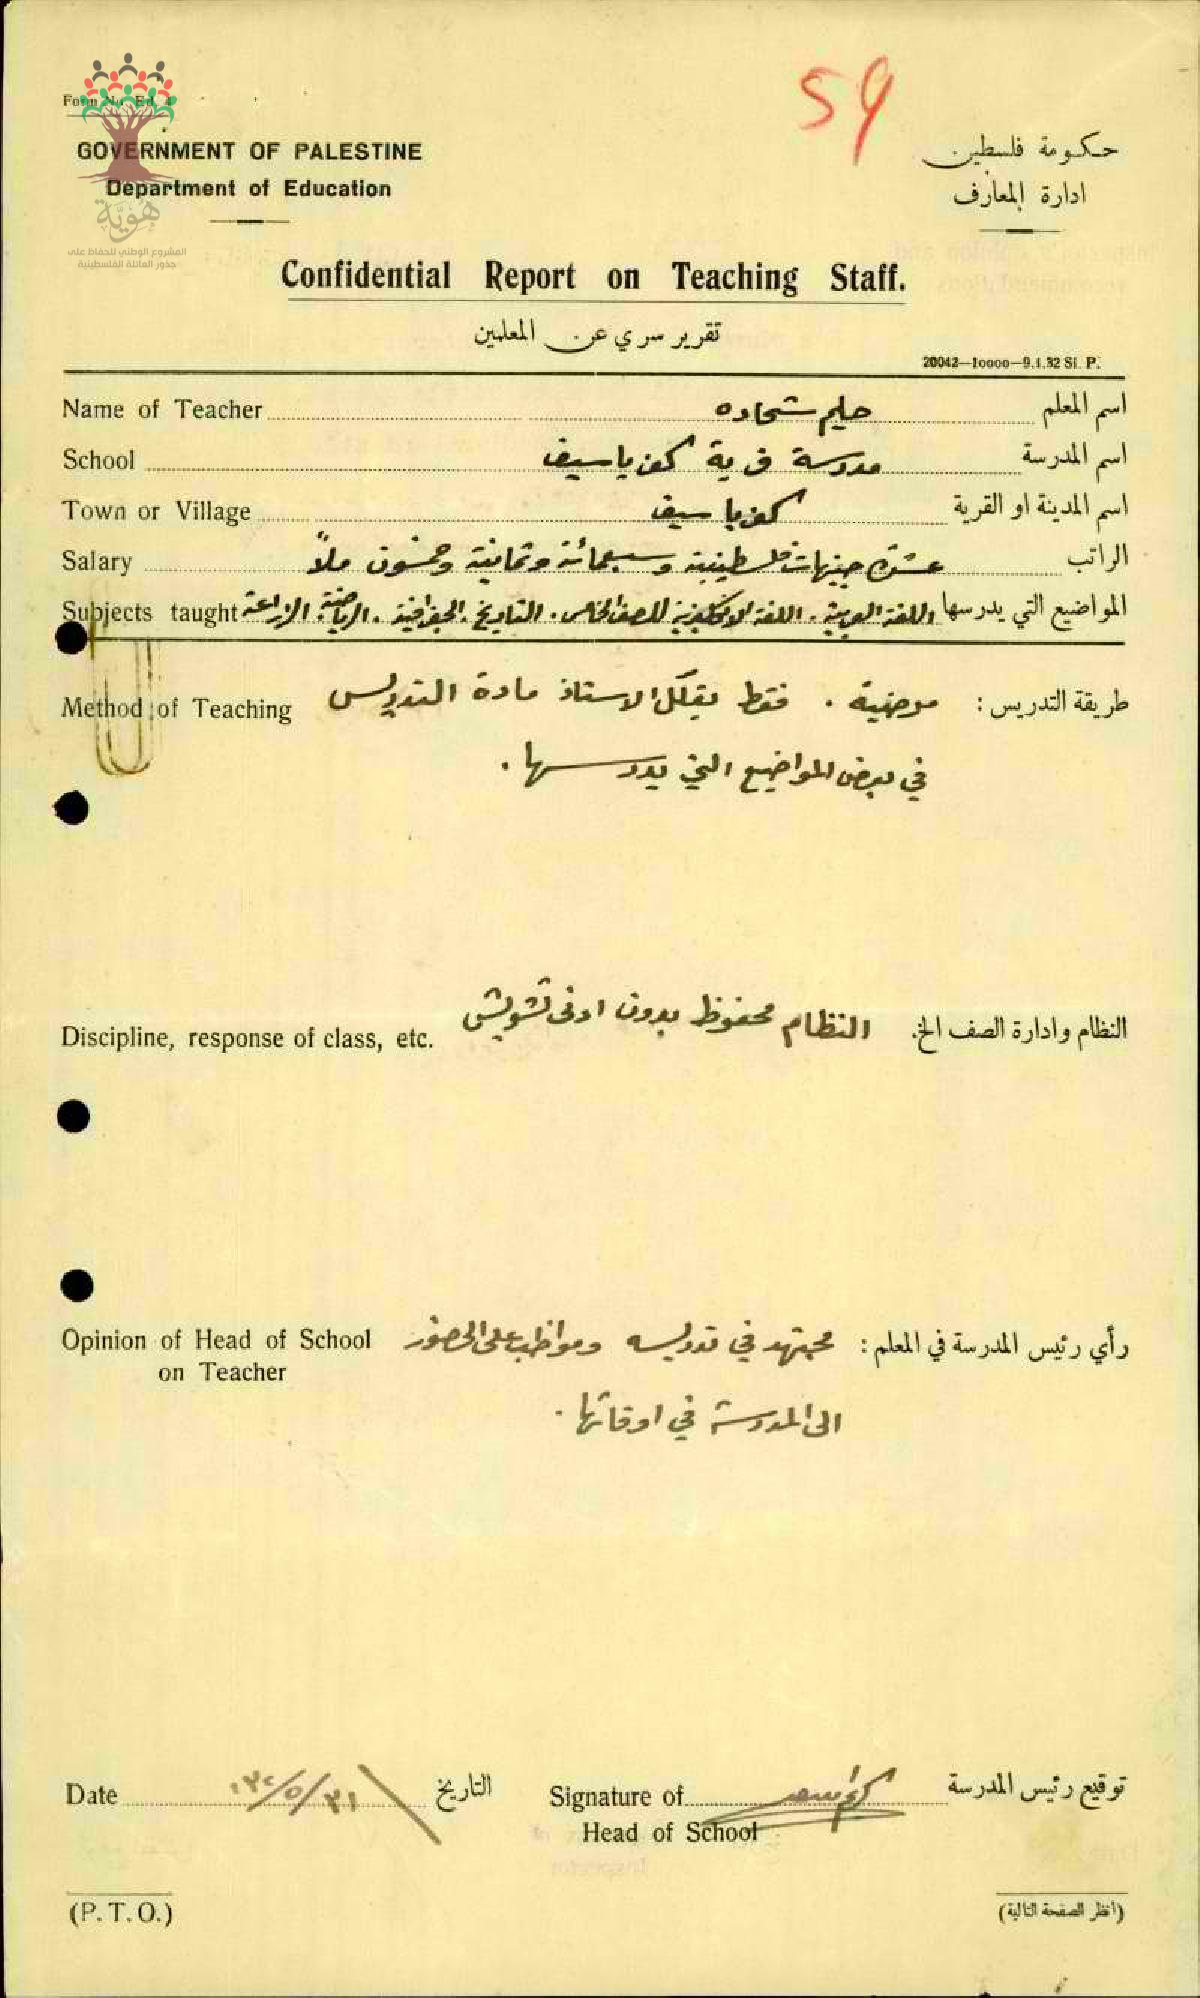 59
Form No. Ed. 4
GOVERNMENT OF PALESTINE
حكومة فلسطين
Department of Education
ادارة المعارف
هُويَّة
المشروع الوطني للحفاظ على
جذور العائلة الفلسطينية
Confidential Report on Teaching Staff.
تقرير سري عن المعلمين
20042—10000—9.1.32 St. P.
Name of Teacher حليم شحاده اسم المعلم
School مدرسة قرية كفر ياسيف اسم المدرسة
Town or Village كفر ياسيف اسم المدينة او القرية
Salary عشرة جنيهات فلسطينية وسبعمائة وثمانية وخمسون ملاً الراتب
Subjects taught اللغة العربية . اللغة الانكليزية للصف الخامس . التاريخ . الجغرافية . الرياضة . الزراعة المواضيع التي يدرسها
Method of Teaching مرضية . فقط يقلل الاستاذ مادة التدريس طريقة التدريس :
في بعض المواضيع التي يدرسها .
Discipline, response of class, etc. النظام محفوظ بدون ادنى تشويش النظام وادارة الصف الخ.
Opinion of Head of School مجتهد في تدريسه ومواظب على الحضور رأي رئيس المدرسة في المعلم :
on Teacher
الى المدرسة في اوقاتها .
Date ٣١/٥/٣٢ التاريخ Signature of توقيع رئيس المدرسة
Head of School
(P.T.O.) (انظر الصفحة التالية)